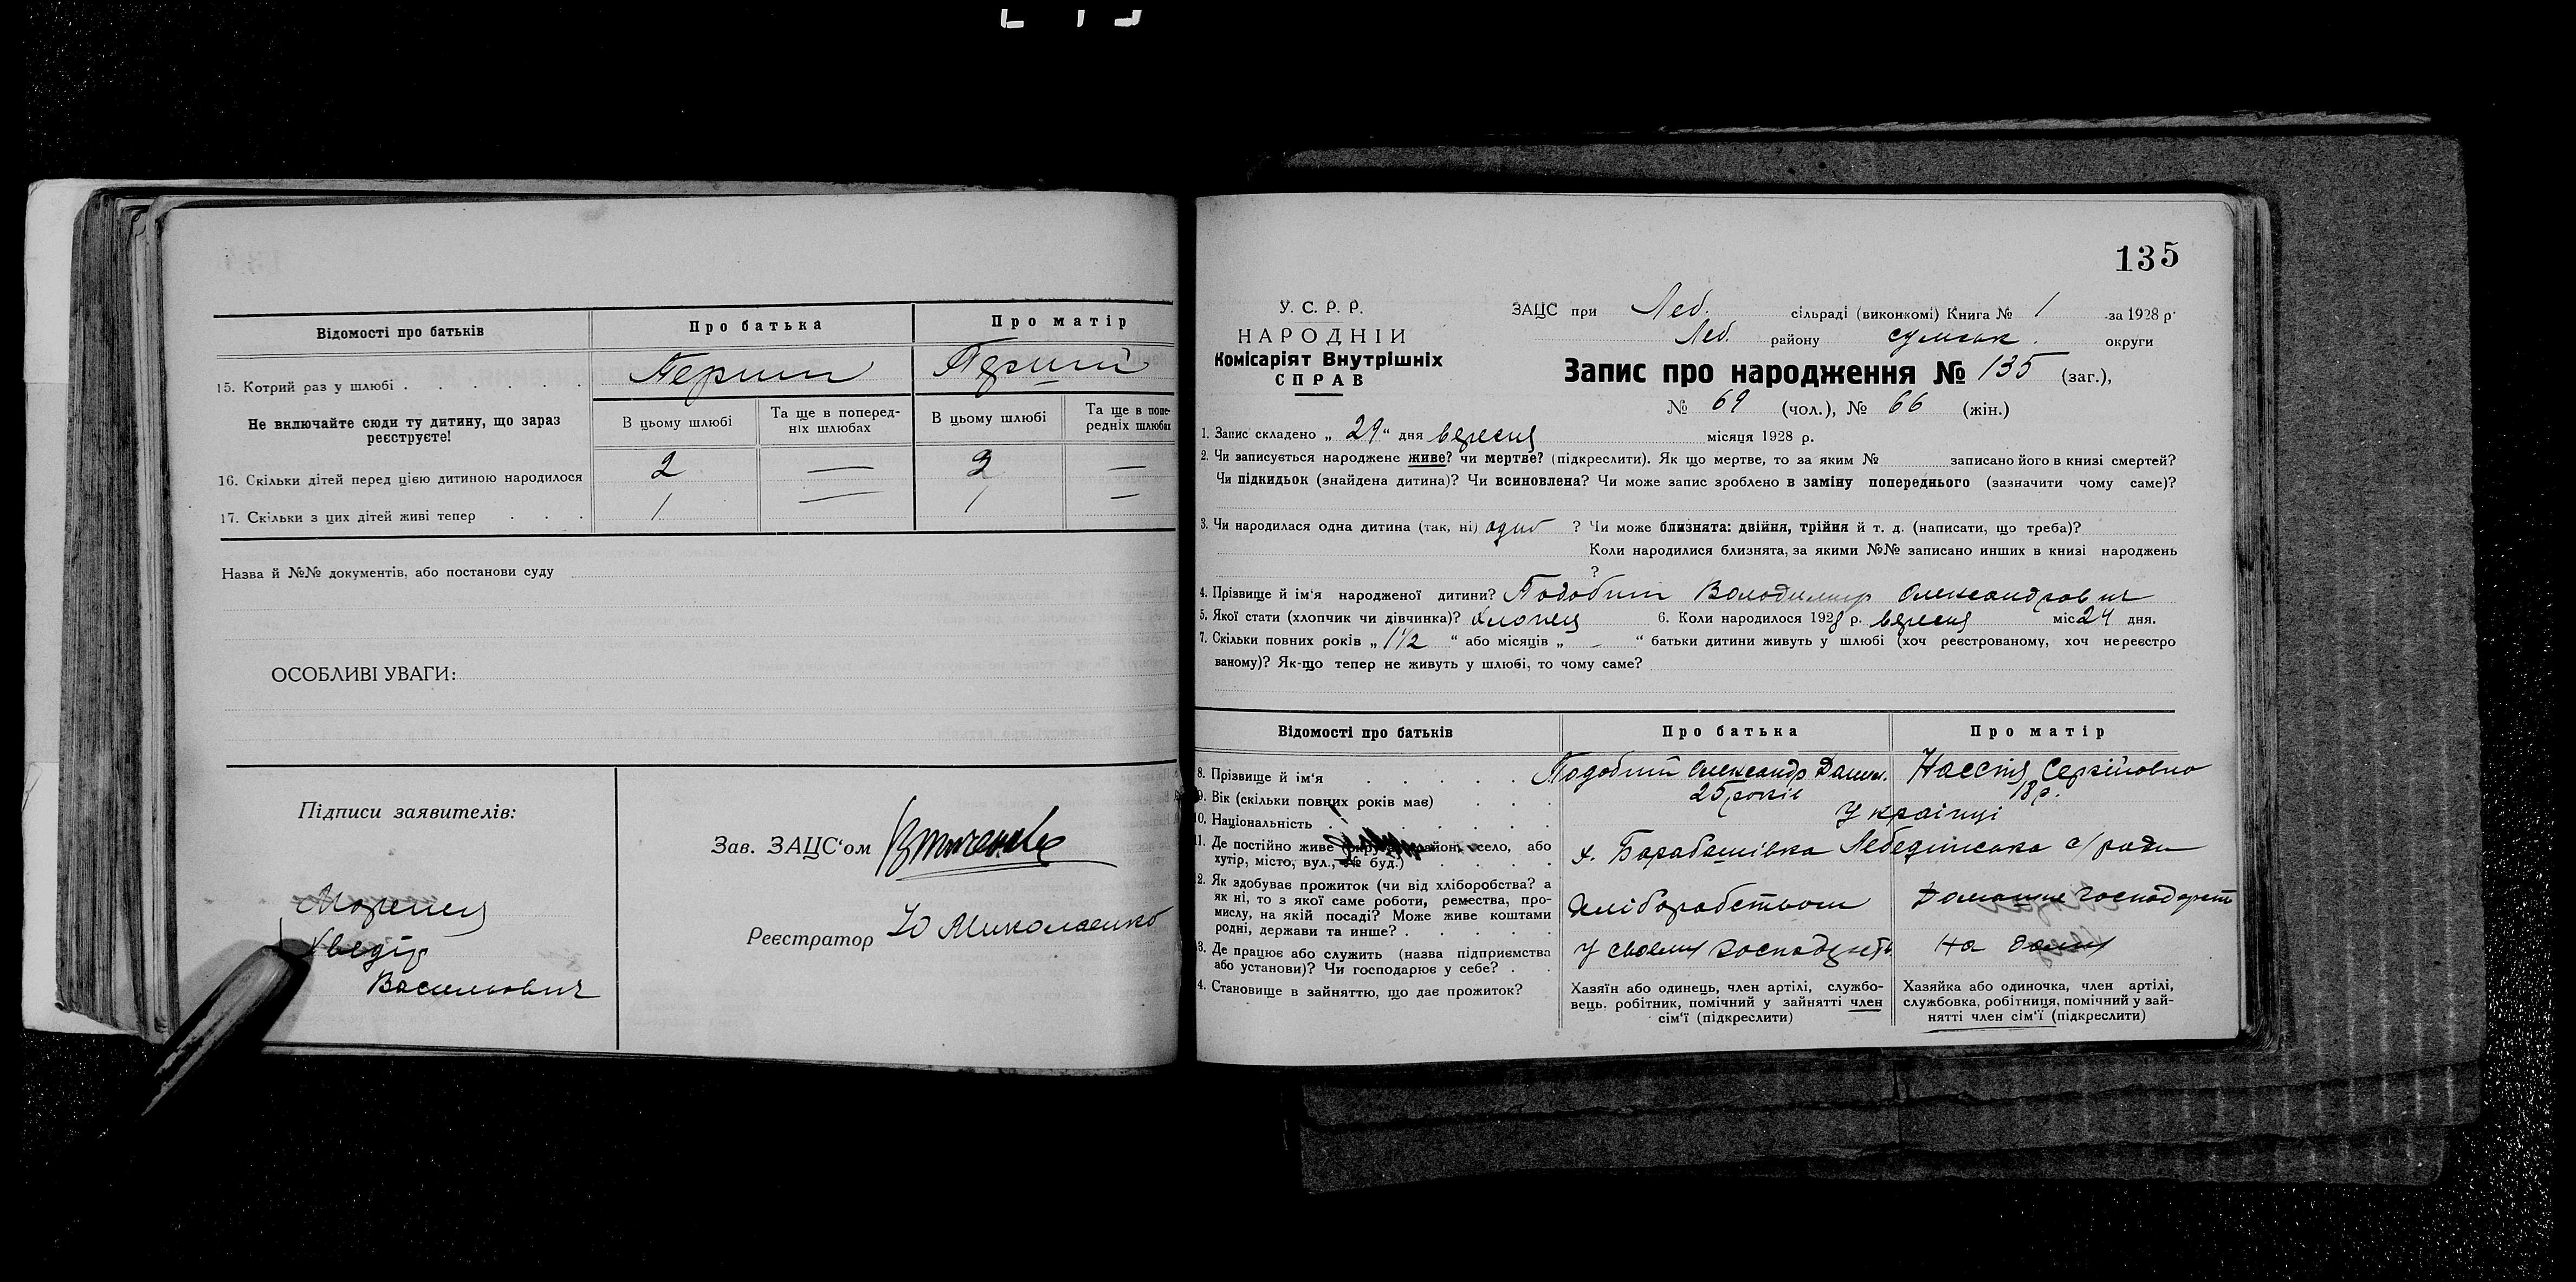 Відомості про батьків
Про батька
Про матір
15. Котрий раз у шлюбі
Перший
Перший
Не включайте сюди ту дитину, що зараз реєструєте!
В цьому шлюбі
Та ще в поперед-
ніх шлюбах
В цьому шлюбі
Та ще в попе-
редніх шлюбах
16. Скільки дітей перед цією дитиною народилося
2 — 2 —
17. Скільки з цих дітей живі тепер
1 — 1 —
Назва й №№ документів, або постанови суду
ОСОБЛИВІ УВАГИ:
Підписи заявителів:
Хведір
Васильович
Зав. ЗАЦС‘ом
Реєстратор Ю Миколаенко
135
У. С. Р. Р.
НАРОДНІЙ
Комісаріят Внутрішніх
СПРАВ
ЗАЦС при Леб. сільраді (виконкомі) Книга № 1 за 1928 р.
Леб. району Сумськ. округи
Запис про народження № 135 (заг.),
№ 69 (чол.), № 66 (жін.)
1. Запис складено „29“ дня вересня місяця 1928 р.
2. Чи записується народжене живе? чи мертве? (підкреслити). Як що мертве, то за яким № записано його в книзі смертей?
Чи підкидьок (знайдена дитина)? Чи всиновлена? Чи може запис зроблено в заміну попереднього (зазначити чому саме)?
3. Чи народилася одна дитина (так, ні) ? Чи може близнята: двійня, трійня й т. д. (написати, що треба)?
Коли народилися близнята, за якими №№ записано инших в книзі народжень
?
4. Прізвище й ім‘я народженої дитини? Подобний Володимир Олександрович
5. Якої стати (хлопчик чи дівчинка)? Хлопець 6. Коли народилося 1928 р. вересня міс 24 дня.
7. Скільки повних років „1½“ або місяців „-“ батьки дитини живуть у шлюбі (хоч реєстрованому, хоч нереєстро
ваному)? Як-що тепер не живуть у шлюбі, то чому саме?
Відомості про батьків
Про батька
Про матір
8. Прізвище й ім‘я
Подобний Олександр
Настя Сергійовна
9. Вік (скільки повних років має)
25 років
18 р.
10. Національність
Українці
11. Де постійно живе (округа, район, село, або
хутір, місто, вул., № буд.)
х. Барабашівка Лебединська с/ради
2. Як здобуває прожиток (чи від хліборобства? а
як ні, то з якої саме роботи, ремества, про-
мислу, на якій посаді? Може живе коштами
родні, держави та инше?
Хліборобством
Домашне господарств
3. Де працює або служить (назва підприємства
або установи)? Чи господарює у себе?
У своєму господарств.
на дому
4. Становище в зайняттю, що дає прожиток?
Хазяїн або одинець, член артілі, службо-
вець, робітник, помічний у зайнятті член
сім‘ї (підкреслити)
Хазяйка або одиночка, член артілі,
службовка, робітниця, помічний у зай-
нятті член сім‘ї (підкреслити)